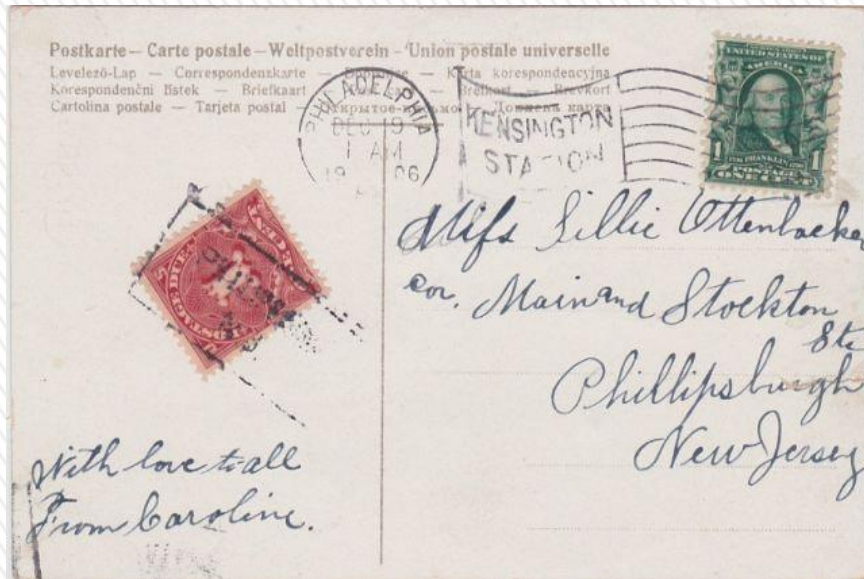 Postkarte – Carte postale – Weltpostverein – Union postale universelle
Levelező-Lap — Correspondenzkarte — — Karta korespondencyjna
Korespondenční lístek — Briefkaart — — Brefkort — Brevkort
Cartolina postale — Tarjeta postal — Открытое письмо — Дописна карта
PHILADELPHIA
DEC 19
1 AM
1906
KENSINGTON
STATION
UNITED STATES OF
AMERICA
1 FRANKLIN 1
POSTAGE
ONE CENT
POSTAGE DUE
Miss Lillie Ottenbacker
cor. Main and Stockton
Sts
Phillipsburgh
New Jersey
With love to all
From Caroline.